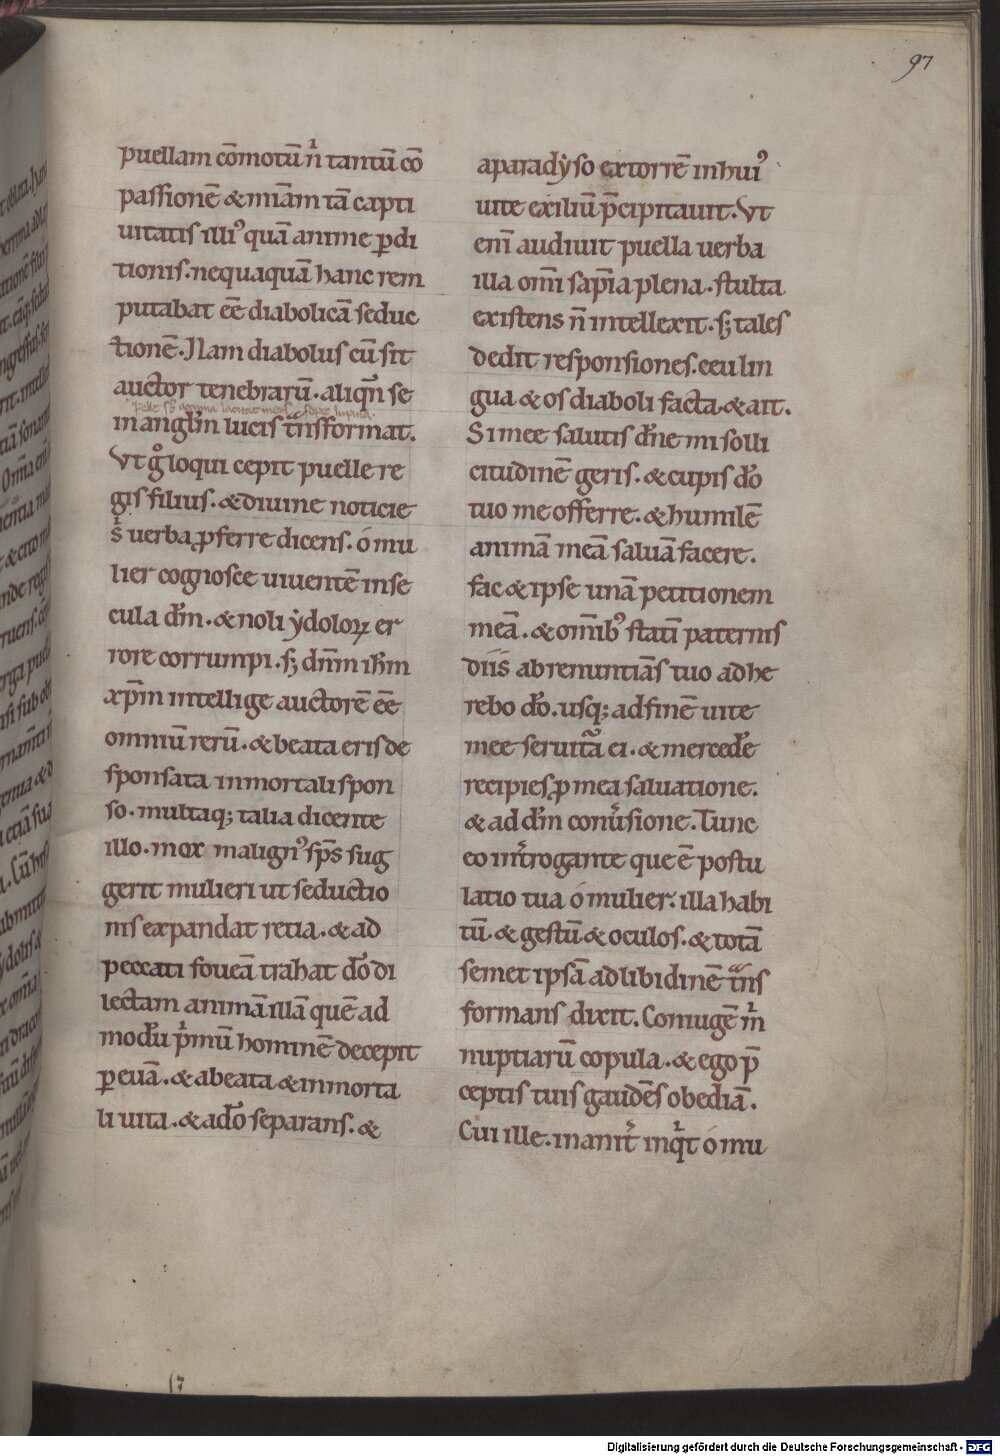 97
puellam cōmotū n̄ tantū cō
passionē & miām tā capti
uitatis illiꝰ quā anime ꝑdi
tionis. nequaquā hanc rem
putabat eē diabolicā seduc
tionē. Nam diabolus cū sit
auctor tenebrarū. aliqn̄ se
in anglm̄ lucis tͣnsformat.
Vt gͦ loqui cepit puelle re
gis filius. & diuine noticie
s̍ uerba ꝓferre dicens. o mu
lier cognosce uiuentē in se
cula dm̄. & noli ẏdoloꝝ er
rore corrumpi. sꝫ dnm̄ ihm̄
xpm̄ intellige auctorē eē
omniū rerū. & beata eris de
sponsata inmortali spon
so. multaq; talia dicente
illo. mox malignꝰ sps̄ sug
gerit mulieri ut seductio
nis expandat retia. & ad
peccati foueā trahat dō di
lectam animā illā quē ad
modū pͥmū hominē decepit
ꝑ euā. & a beata & inmorta
li uita. & a dō separans. &
a paradẏso extorrē in huiꝰ
uite exiliū p̄cipitauit. Vt
enī audiuit puella uerba
illa omī sapīa plena. stulta
existens n̄ intellexit. sꝫ tales
dedit responsiones. ceu lin
gua & os diaboli facta. & ait.
Si mee salutis dn̄e mi solli
citudinē geris. & cupis dō
tuo me offerre. & humilē
animā meā saluā facere.
fac & ipse unā petitionem
meā. & omībꝰ statī paternis
diis abrenuntiās tuo adhe
rebo dō. usq; ad finē uite
mee seruitͣa ei. & mercedē
recipies ꝓ mea saluatione.
& ad dm̄ conu̍sione. Tunc
eo int̍rogante que ē postu
latio tua o mulier. illa habi
tū. & gestū & oculos. & totā
semet ipsā ad libidinē tͣns
formans dixit. Coniugē m̍
nuptiarū copula. & ego p̄
ceptis tuis gaudēs obediā.
Cui ille. inanit̍ inqͥt o mu